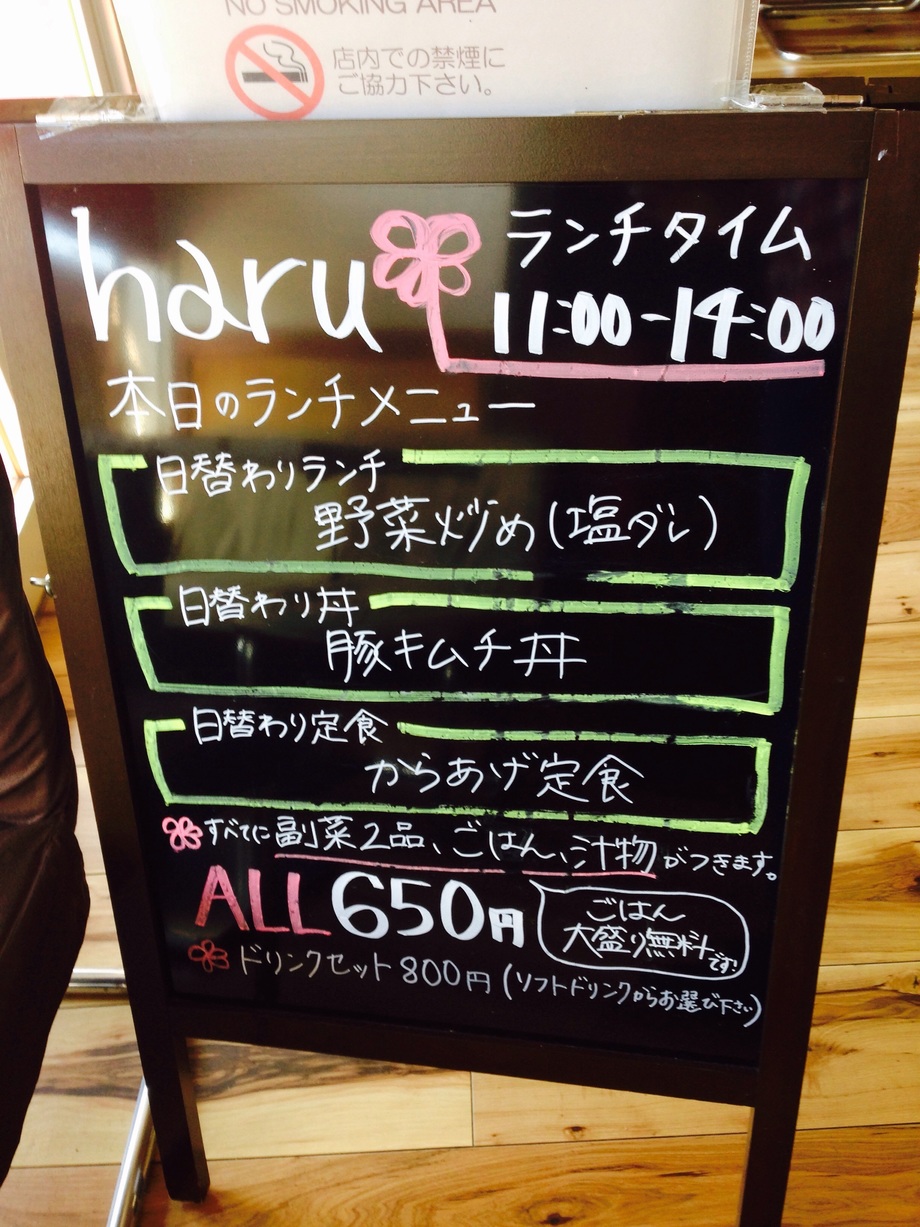 NO SMOKING AREA
店内での禁煙に
ご協力下さい。
haru
ランチタイム
11:00-14:00
本日のランチメニュー
日替わりランチ
野菜炒め(塩ダレ)
日替わり丼
豚キムチ丼
日替わり定食
からあげ定食
すべてに副菜2品、ごはん、汁物がつきます。
ALL 650円
ごはん
大盛り無料です!
ドリンクセット 800円(ソフトドリンクからお選び下さい)